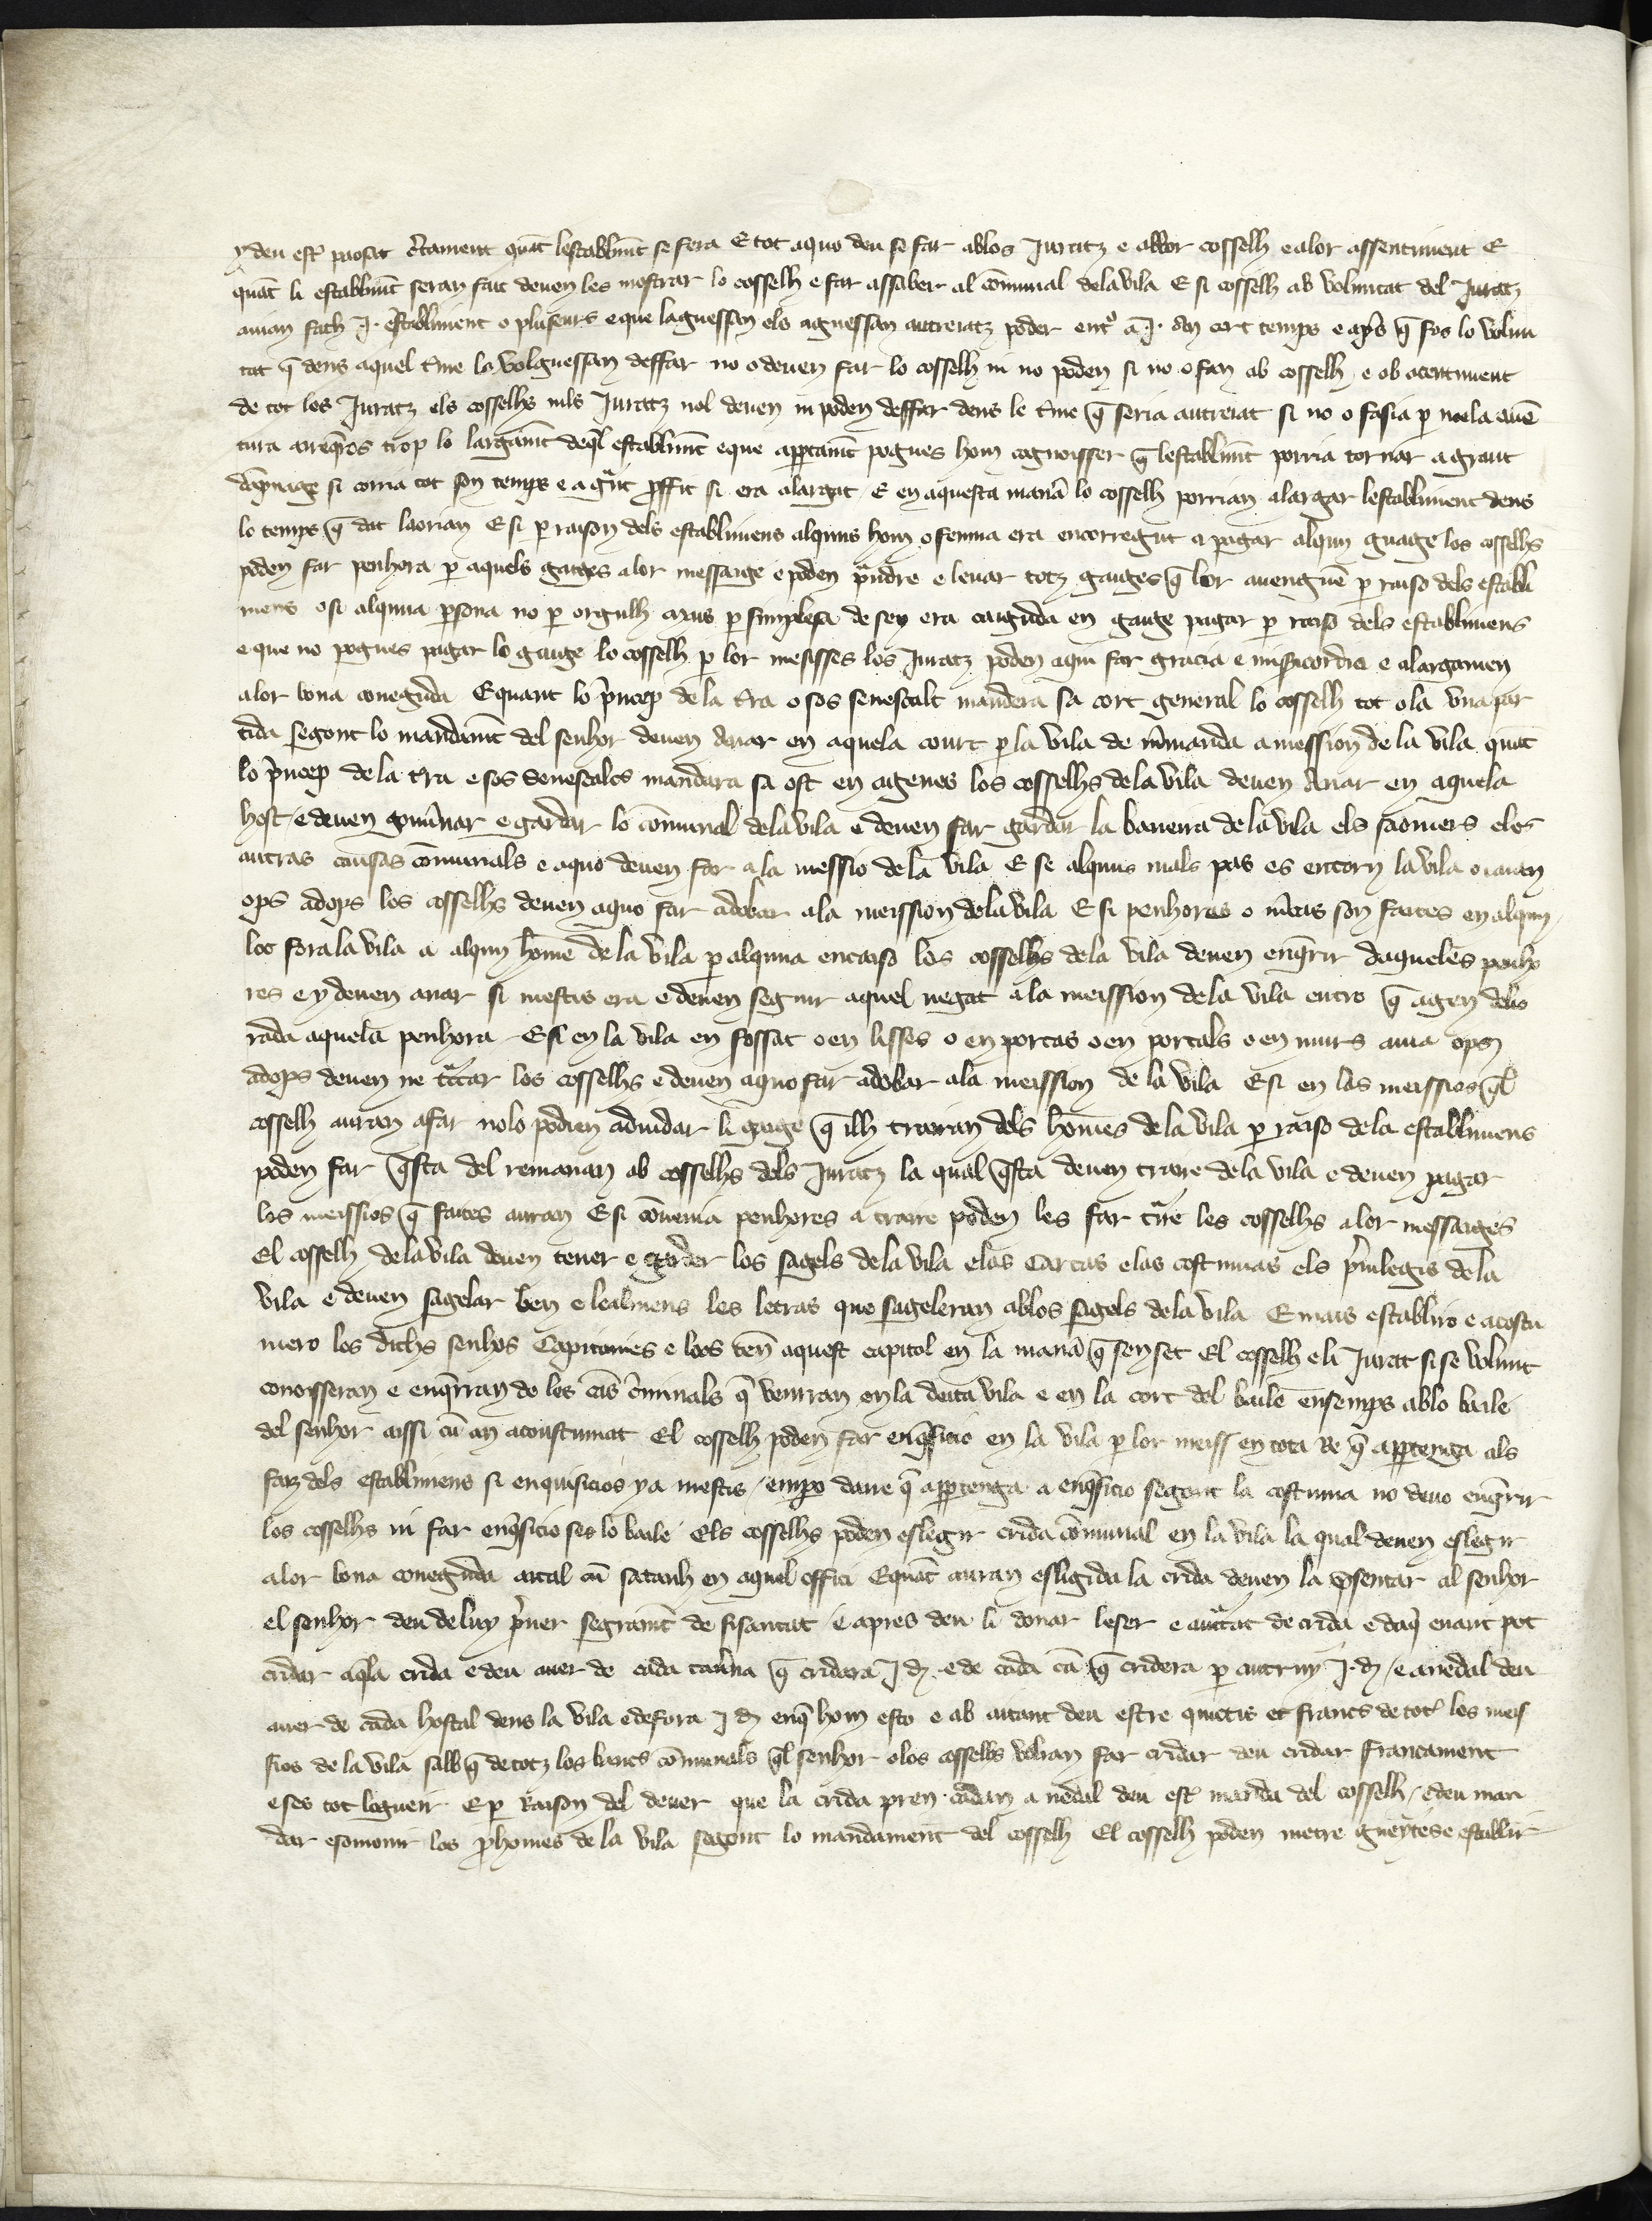 y deu estͬ pausat c̃tament quãt lestablim̃t se fera E tot aquo deu se far ablos Juratz e ablor cosselh e alor assentiment E
quãt li establim̃t seran fait deuen les mostrar lo cosselh e far assaber al cõmunal dela vila E si cosselh ab voluntat del Juratz
auian fach .j. establiment o pluseurs e que laguessan els aguessan autreiatz poder entͦ a .j. an cert temps e ap̃s q̃ fos lo volun
tat q̃ dens aquel t̃me lo volguessan deffar no o deuen far lo cosselh ni no poden si no o fan ab cosselh e ab acentiment
de tot los Juratz els cosselhs nils Juratz nol deuen ni poden deffar dens le t̃me q̃ seria autreiat si no o fasia p noela auẽ
tura o reqr̃es trop lo largam̃t deq̃l establim̃t e que appertam̃t pogues hom cognoisser q̃ lestablim̃t porria tornar a grant
dãpnage si coma tot son temps e a gͣnt p̱ffit si era alargat E en aquesta manͣ lo cosselh porrian alargar lestabliment dens
lo temps q̃ dat laorian E si p raison dels establimens alquns hom o femna era encorregut a pagar alqun guatge los cosselhs
poden far penhora p aquels gatges a lor messatge e poden pͣndre e leuar totz gatges q̃ lor auenguẽ p raiso dels establi
mens o si alquna psona no p orgulh mas p simplesa de sey era caiguda en gatge pagar p raiso dels establimens
e que no pogues pagar lo gatge lo cosselh p lor mesisses los Juratz poden aqui far gracia e mis̃icordia e alargamen
a lor bona coneguda E quant lo p̃ncep de la t̃ra o sos senescalt mandera sa cort general lo cosselh tot o la una par
tida segont lo mandam̃t del senhor deuen anar en aquela court p la vila de m̃manda a mession de la vila quãt
lo p̃ncep de la t̃ra e sos Senescales mandara sa ost en agenes los cosselhs de la vila deuen anar en aquela
host e deuen gou̾nar e gardar lo cõmunal dela vila e deuen far gardar la baneira de la vila els saomers elos
autras causas cõmunals e aquo deuen far a la messio de la vila E se alquns mals pas es entorn la vila o i auen
ops adops los cosselhs deuen aquo far adobar a la meission de la vila E si penhores o m̃cas son faites en alqun
loc fora la vila a alqun hõme de la vila p alquna encaiso los cosselhs de la vila deuen enq̃rir daqueles penho
res e y deuen anar si mestis era e deuen seguir aquel negat a la meission de la vila entro q̃ agen deliu
rada aquela penhora E si en la vila en fossat o en lisses o en portas o en portals o en murs auia ops
adops deuen ne tͣctar los cosselhs e deuen aquo far adobar ala meission de la vila E si en las meissios q̃l
cosselh auran a far nolo podien aduidar li gatge q̃ ilh trairan dels hõmes de la vila p raiso de la establimens
poden far q̃sta del remanan ab cosselhs dels Juratz la qual q̃sta deuen traire de la vila e deuen pagar
las meissios q̃ faites auran E si cõuenia penhores a traire poden les far tͣire les cosselhs a lor messatges
El cosselh de la vila deuen tener e garder los sagels de la vila elas Cartas elas costumas els p̃uilegis de la
vila e deuen sagelar ben e lealmens les letras que sageleran ablos sagels dela vila E mais establiro e acostu
mero los dichs senhos Capitanies e loos teñ aquest capitol en la manͣ q̃ sen set El cosselh e li Jurat si se volunt
conoisseran e enqr̃ran de les cũs c̃minals q̃ venrran en la deita vila e en la cort del baile ensemps ablo baile
del senhor aissi cũ an acoustumat El cosselh poden far enq̃sicio en la vila p lor meiss en tota Re q̃ appertenga als
faiz dels establimens si enquisicios y a mestis / emp̱o daue q̃ appertenga a enq̃sicio segont la costuma no deuo enq̃rir
los cosselhs ni far enq̃sicio ses lo baile Els cosselhs poden eslegir crida cõmunal en la vila la qual deuen eslegir
a lor bona coneguda aital cũ satanh en aquel offici E quãt auran esligida la crida deuen la p̱sentar al senhor
el senhor deu de luy p̃ner segram̃t de fisautat / e apres deu li donar leser e autͣtat de crida e daq̃ enant pot
cridar aq̃la crida e deu auer de cada tau̾na q̃ cridara .j. d. e de cada cũ q̃ cridera p autruy .j. d. / e a nedal deu
auer de cada hostal dens la vila e defora .j. d. enq̃ hom esto e ab aitant deu estre quictis et francs de totͬ les meis
sios de la vila salb q̃ de totz los bancs cõmunals q̃l senhor o los cosselhs volran far cridar deu cridar francament
e ses tot loguer E p Raison del deuer que la crida pren cadan a nedal deu estͬ manda del cosselh / e deu man
dar e somonir los p̱homes de la vila segont lo mandament del cosselh El cosselh poden metre gueytes e establir